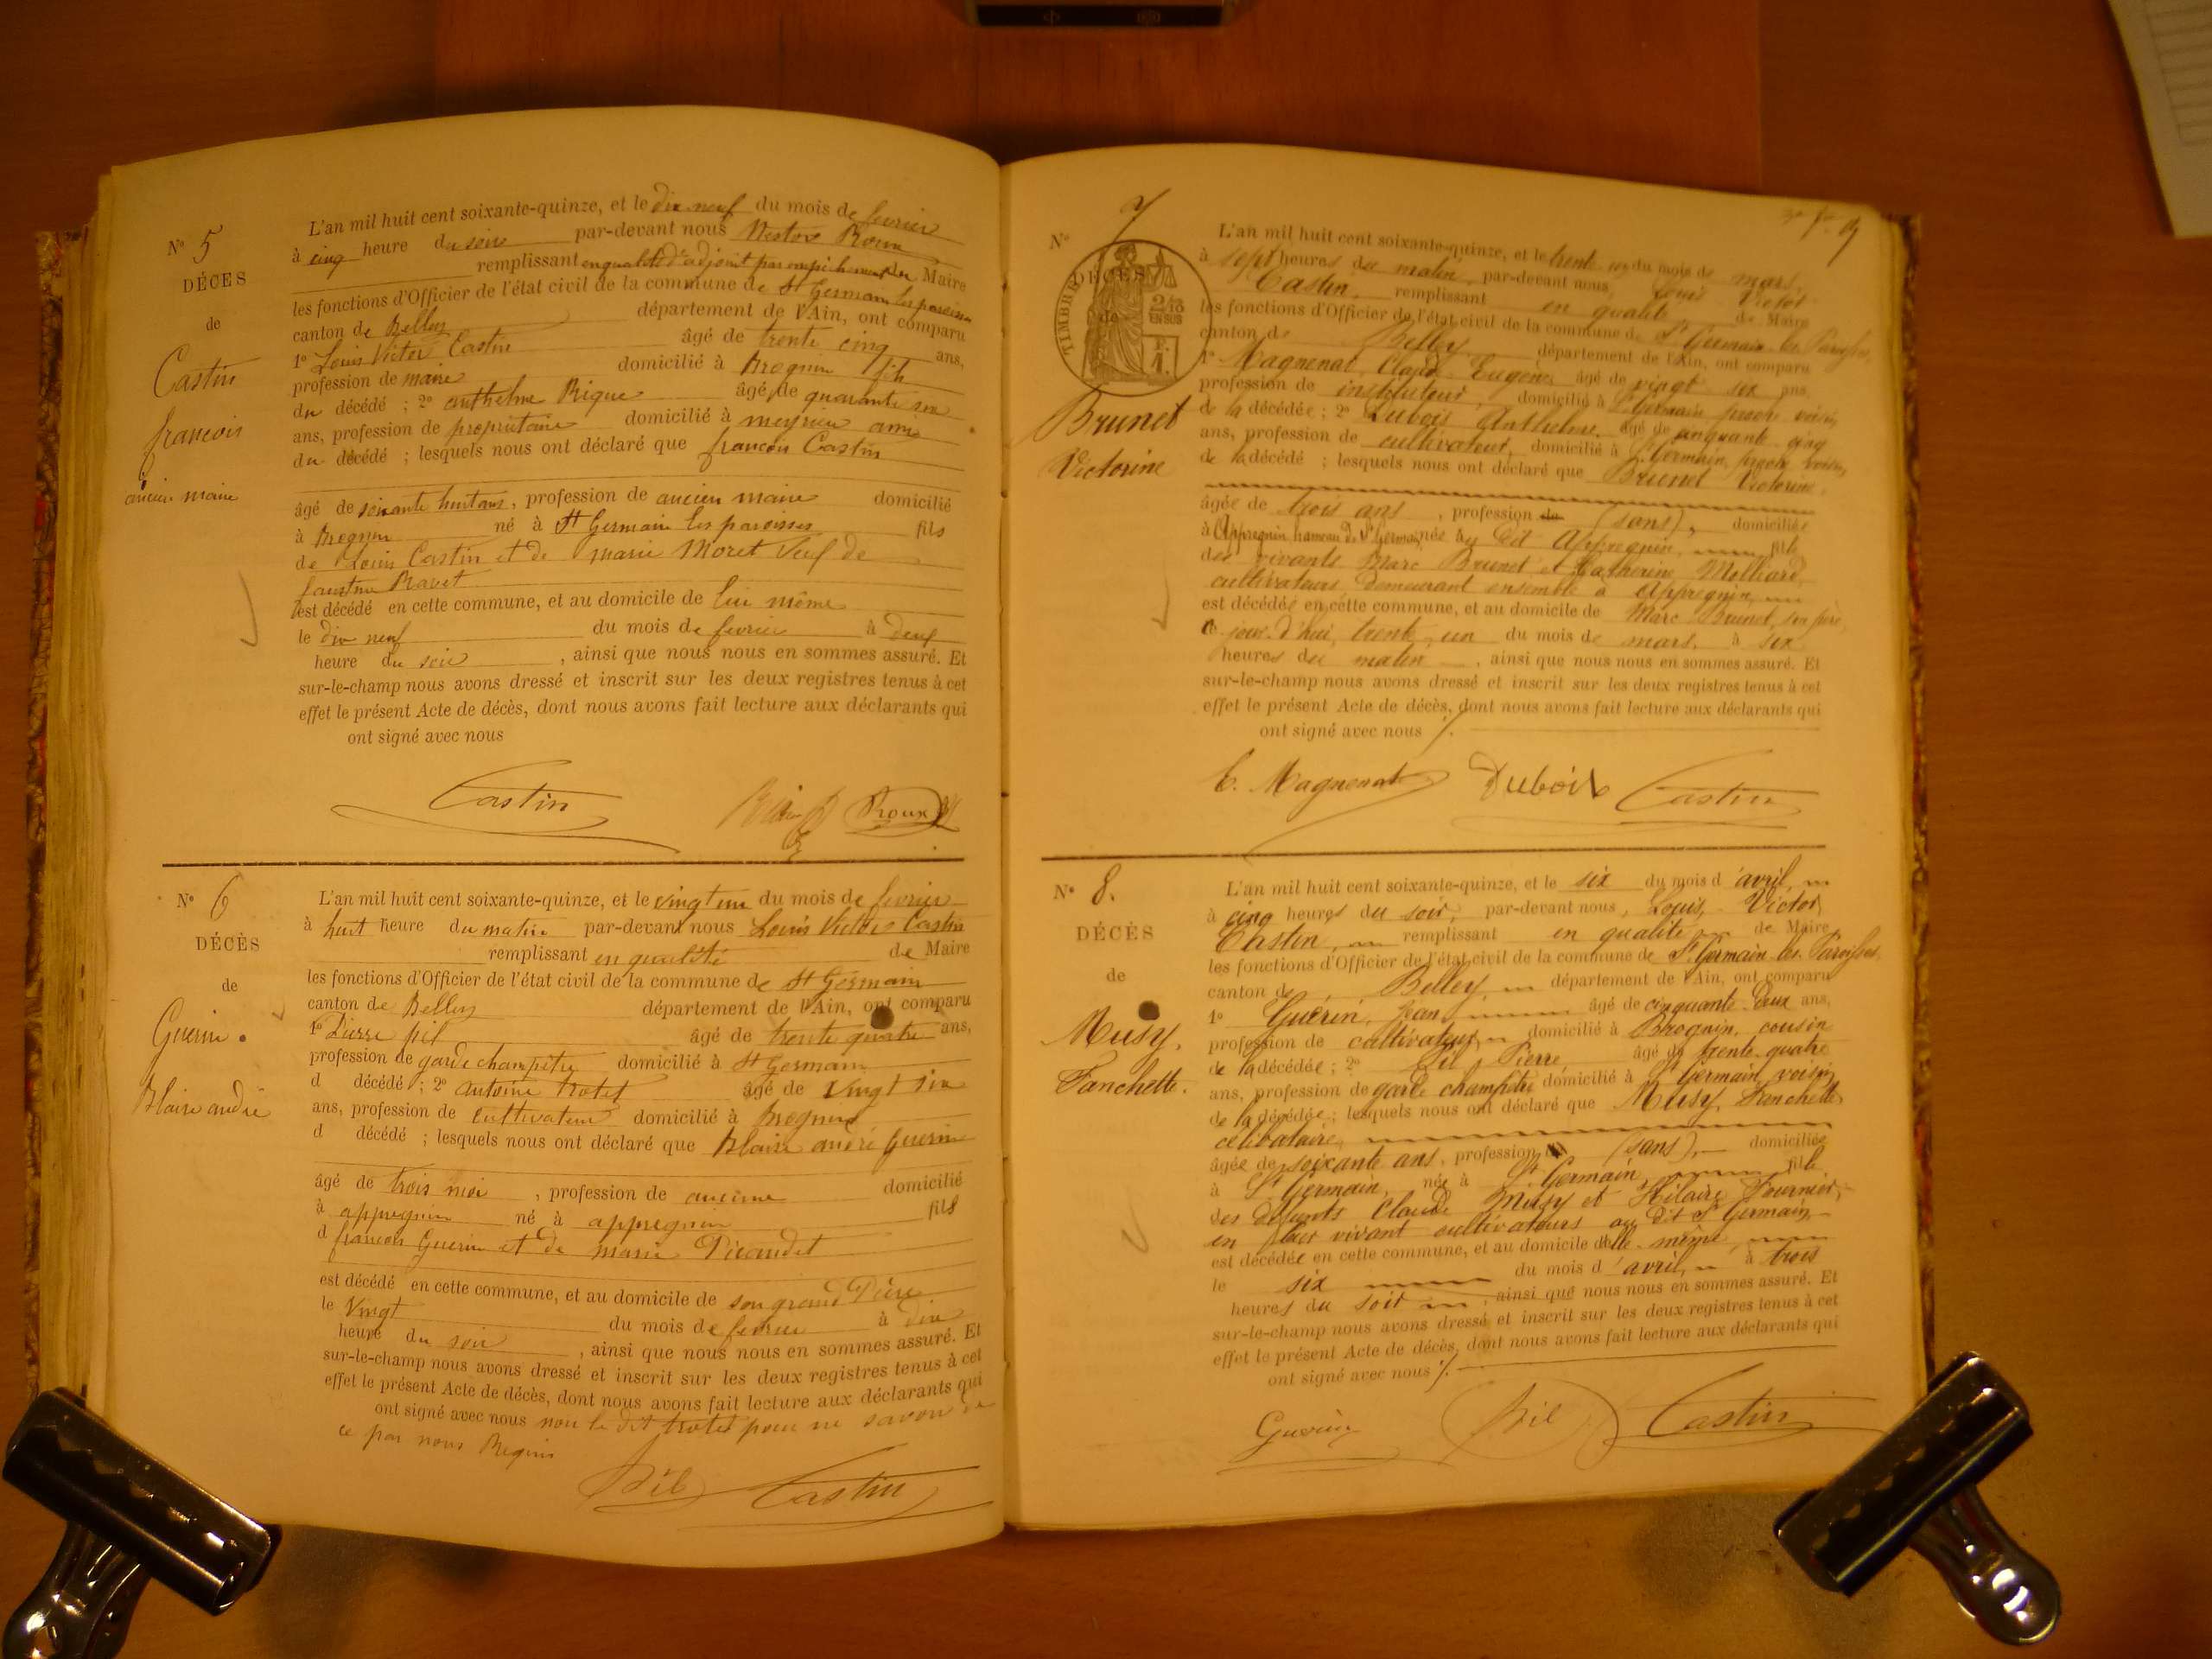 N° 5
DÉCÈS
de
Castin
francois
ancien maire
L'an mil huit cent soixante-quinze, et le dix neuf du mois de fevrier
à cinq heure du soir par-devant nous Nestor Roux
remplissant en qualité d'adjoint par empêchement du Maire
les fonctions d'Officier de l'état civil de la commune de St Germain les paroisses
canton de Belley département de l'Ain, ont comparu
1° Louis Victor Castin âgé de trente cinq ans,
profession de maire domicilié à Brognin fils
du décédé ; 2° anthelme Rique âgé de quarante six
ans, profession de propriétaire domicilié à meyrieu ami
du décédé ; lesquels nous ont déclaré que francois Castin
âgé de soixante huit ans, profession de ancien maire domicilié
à Brognin né à St Germain les paroisses fils
de Louis Castin et de marie Moret veuf de
faustine Ravet
est décédé en cette commune, et au domicile de lui même
le dix neuf du mois de fevrier à deux
heure du soir, ainsi que nous nous en sommes assuré. Et
sur-le-champ nous avons dressé et inscrit sur les deux registres tenus à cet
effet le présent Acte de décès, dont nous avons fait lecture aux déclarants qui
ont signé avec nous
Castin Roux
N° 6
DÉCÈS
de
Guerin
Blaise andré
L'an mil huit cent soixante-quinze, et le vingt un du mois de fevrier
à huit heure du matin par-devant nous Louis Victor Castin
remplissant en qualité de Maire
les fonctions d'Officier de l'état civil de la commune de St Germain
canton de Belley département de l'Ain, ont comparu
1° Pierre pil âgé de trente quatre ans,
profession de garde champêtre domicilié à St Germain
d décédé ; 2° antoine trotet âgé de vingt six
ans, profession de cultivateur domicilié à Brognin
d décédé ; lesquels nous ont déclaré que Blaise andré Guerin
âgé de trois moi, profession de aucune domicilié
à appregnin né à appregnin fils
d francois Guerin et de marie Picaudet
est décédé en cette commune, et au domicile de son grand Père
le vingt du mois de fevrier à dix
heure du soir, ainsi que nous nous en sommes assuré. Et
sur-le-champ nous avons dressé et inscrit sur les deux registres tenus à cet
effet le présent Acte de décès, dont nous avons fait lecture aux déclarants qui
ont signé avec nous non le dit trotet pour ne savoir de
ce par nous Requis
Pil Castin
N° 7
DÉCÈS
de
TIMBRE
2/10
EN SUS
Brunet
Victorine
L'an mil huit cent soixante-quinze, et le trente un du mois de mars,
à sept heures du matin, par-devant nous, Louis Victor
Castin, remplissant en qualité de Maire
les fonctions d'Officier de l'état civil de la commune de St Germain-les-Paroisses,
canton de Belley département de l'Ain, ont comparu
1° Magnenat Claude Eugène, âgé de vingt-six ans,
profession de instituteur, domicilié à St Germain, proche voisin
de la décédée ; 2° Dubois Anthelme, âgé de cinquante-cinq
ans, profession de cultivateur, domicilié à St Germain, proche voisin,
de la décédée ; lesquels nous ont déclaré que Brunet Victorine,
âgée de trois ans, profession de (sans), domiciliée
à Appregnin, hameau de St Germain, née au dit Appregnin, fille
des vivants Marc Brunet et Catherine Molliard
cultivateurs demeurant ensemble à Appregnin,
est décédée en cette commune, et au domicile de Marc Brunet, son père,
ce jour d'hui, trente-un du mois de mars, à six
heures du matin, ainsi que nous nous en sommes assuré. Et
sur-le-champ nous avons dressé et inscrit sur les deux registres tenus à cet
effet le présent Acte de décès, dont nous avons fait lecture aux déclarants qui
ont signé avec nous ./.
C. Magnenat Dubois Castin
N° 8.
DÉCÈS
de
Musy,
Fanchette.
L'an mil huit cent soixante-quinze, et le six du mois d'avril,
à cinq heures du soir, par-devant nous, Louis, Victor
Castin, remplissant en qualité de Maire
les fonctions d'Officier de l'état civil de la commune de St Germain-les-Paroisses,
canton de Belley, département de l'Ain, ont comparu
1° Guérin, Jean, âgé de cinquante-deux ans,
profession de cultivateur, domicilié à Brognin, cousin
de la décédée ; 2° Pil Pierre, âgé de trente-quatre
ans, profession de garde champêtre domicilié à St Germain, voisin
de la décédée ; lesquels nous ont déclaré que Musy, Fanchette,
célibataire,
âgée de soixante ans, profession (sans), domiciliée
à St Germain, née à St Germain, fille
des défunts Claude Musy et Hilaire Fournier,
en leur vivant cultivateurs au dit St Germain,
est décédée en cette commune, et au domicile d'elle-même,
le six du mois d'avril, à trois
heures du soir, ainsi que nous nous en sommes assuré. Et
sur-le-champ nous avons dressé et inscrit sur les deux registres tenus à cet
effet le présent Acte de décès, dont nous avons fait lecture aux déclarants qui
ont signé avec nous ./.
Guérin Pil Castin